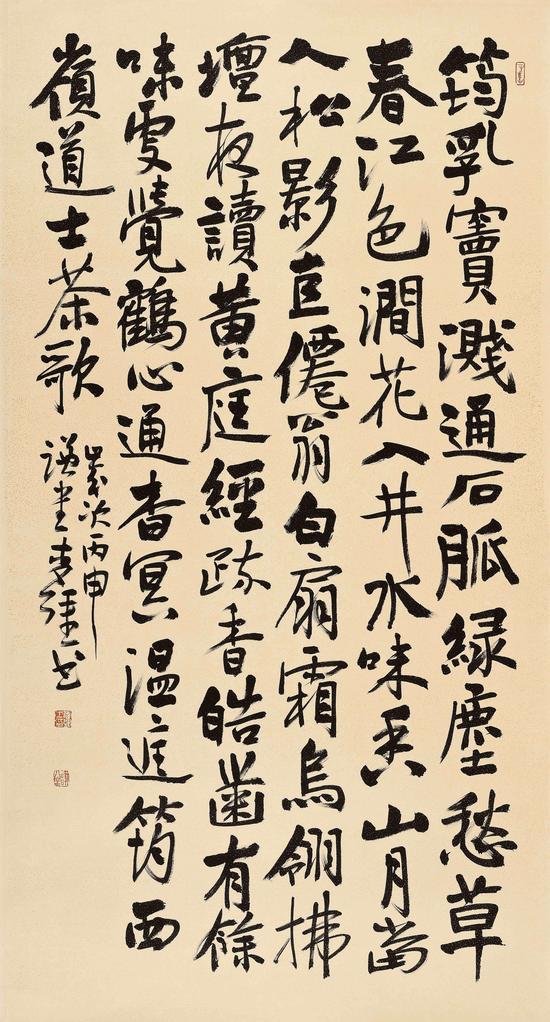 筠乳竇濺通石脈綠塵愁草
春江色澗花入井水味香山月當
人松影直僊翁白扇霜烏翎拂
壇夜讀黃庭經疏香皓齒有餘
味更覺鶴心通杳冥溫庭筠西
嶺道士茶歌
歲次丙申